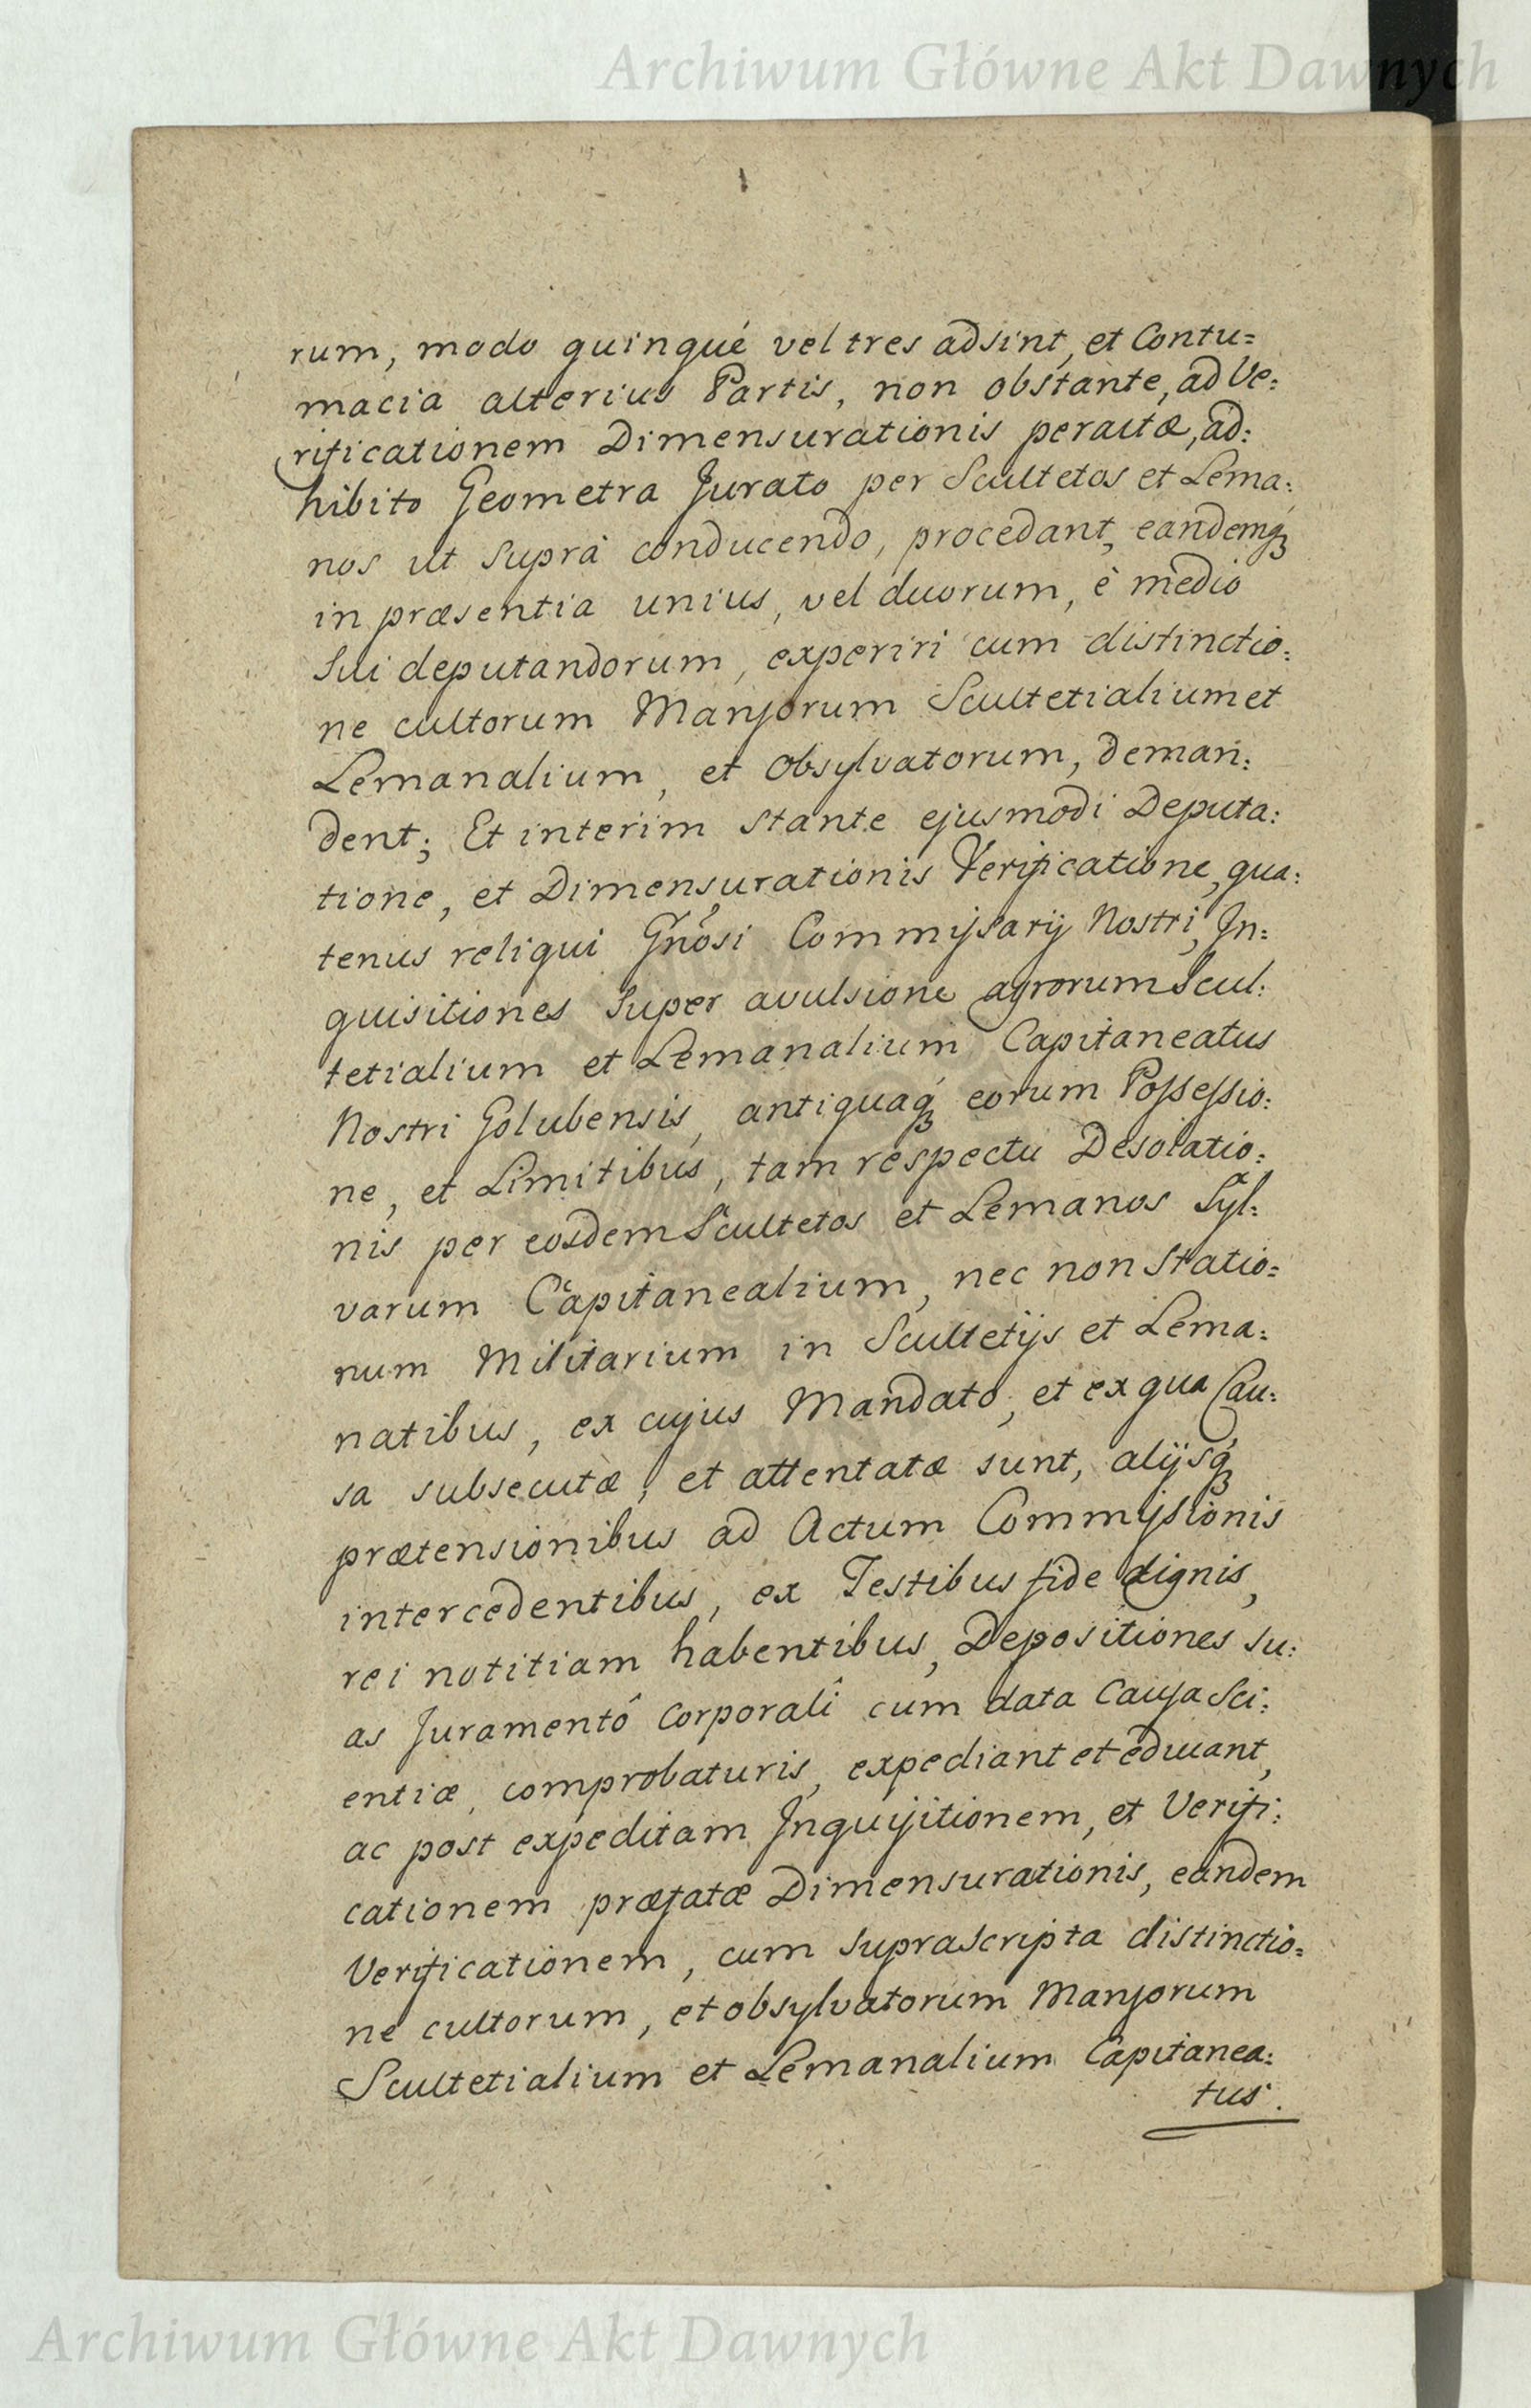 Archiwum Główne Akt Dawnych
rum, modo quinqué vel tres adsint, et Contu=
macia alterius Partis, non obstante, ad Ve:
rificationem Dimensurationis peractæ, ad:
hibito Geometra Jurato per Scultetos et Lema:
nos ut suprà conducendo, procedant, eandemq́
in præsentia unius, vel duorum, è medio
sui deputandorum, experiri cum distinctio:
ne cultorum Mansorum Scultetialium et
Lemanalium, et obsylvatorum, deman:
dent; Et interim stante ejusmodi Deputa:
tione, et Dimensurationis Verificatione, qua:
tenus reliqui Gñosi Commissarij Nostri, In=
quisitiones super avulsione agrorum Scul:
tetialium et Lemanalium Capitaneatus
Nostri Golubensis, antiquaq́ eorum Possessio:
ne, et Limitibus, tam respectu Desolatio:
nis per eosdem Scultetos et Lemanos Syl:
varum Capitanealium, nec non Statio=
num Militarium in Scultetijs et Lema:
natibus, ex cujus Mandato, et ex qua Cau:
sa subsecutæ, et attentatæ sunt, alijsq́
prætensionibus ad Actum Commissionis
intercedentibus, ex Testibus fide dignis,
rei notitiam habentibus, Depositiones su:
as Juramentô Corporalî cum data Causa Sci:
entiæ, comprobaturis, expediant et educant,
ac post expeditam Inquisitionem, et Verifi:
cationem præfatæ Dimensurationis, eandem
Verificationem, cum suprascripta distinctio=
ne cultorum, et obsylvatorum Mansorum
Scultetialium et Lemanalium Capitanea:
tus.
Archiwum Główne Akt Dawnych